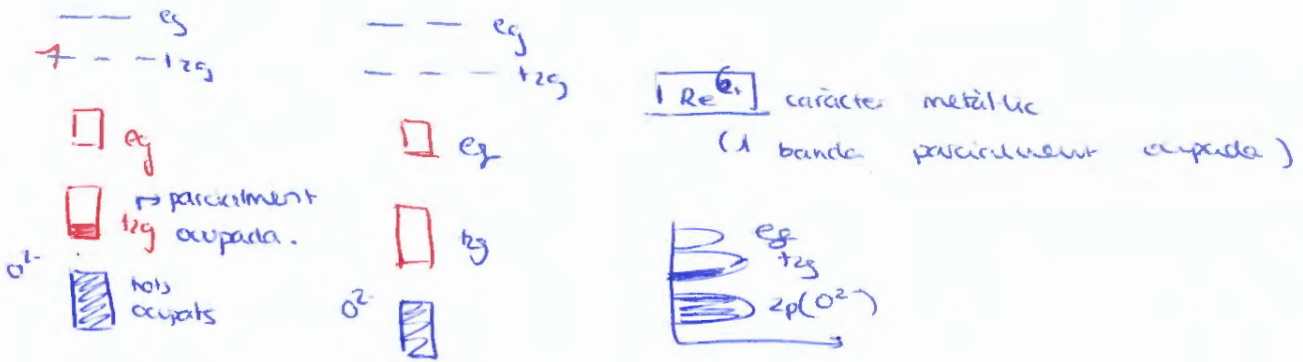 eg
t2g
eg
↦ parcialment
t2g ocupada.
O²⁻
tots
ocupats
eg
t2g
eg
t2g
O²⁻
Re⁶⁺ caràcter metàl·lic
(1 banda parcialment ocupada)
eg
t2g
2p(O²⁻)